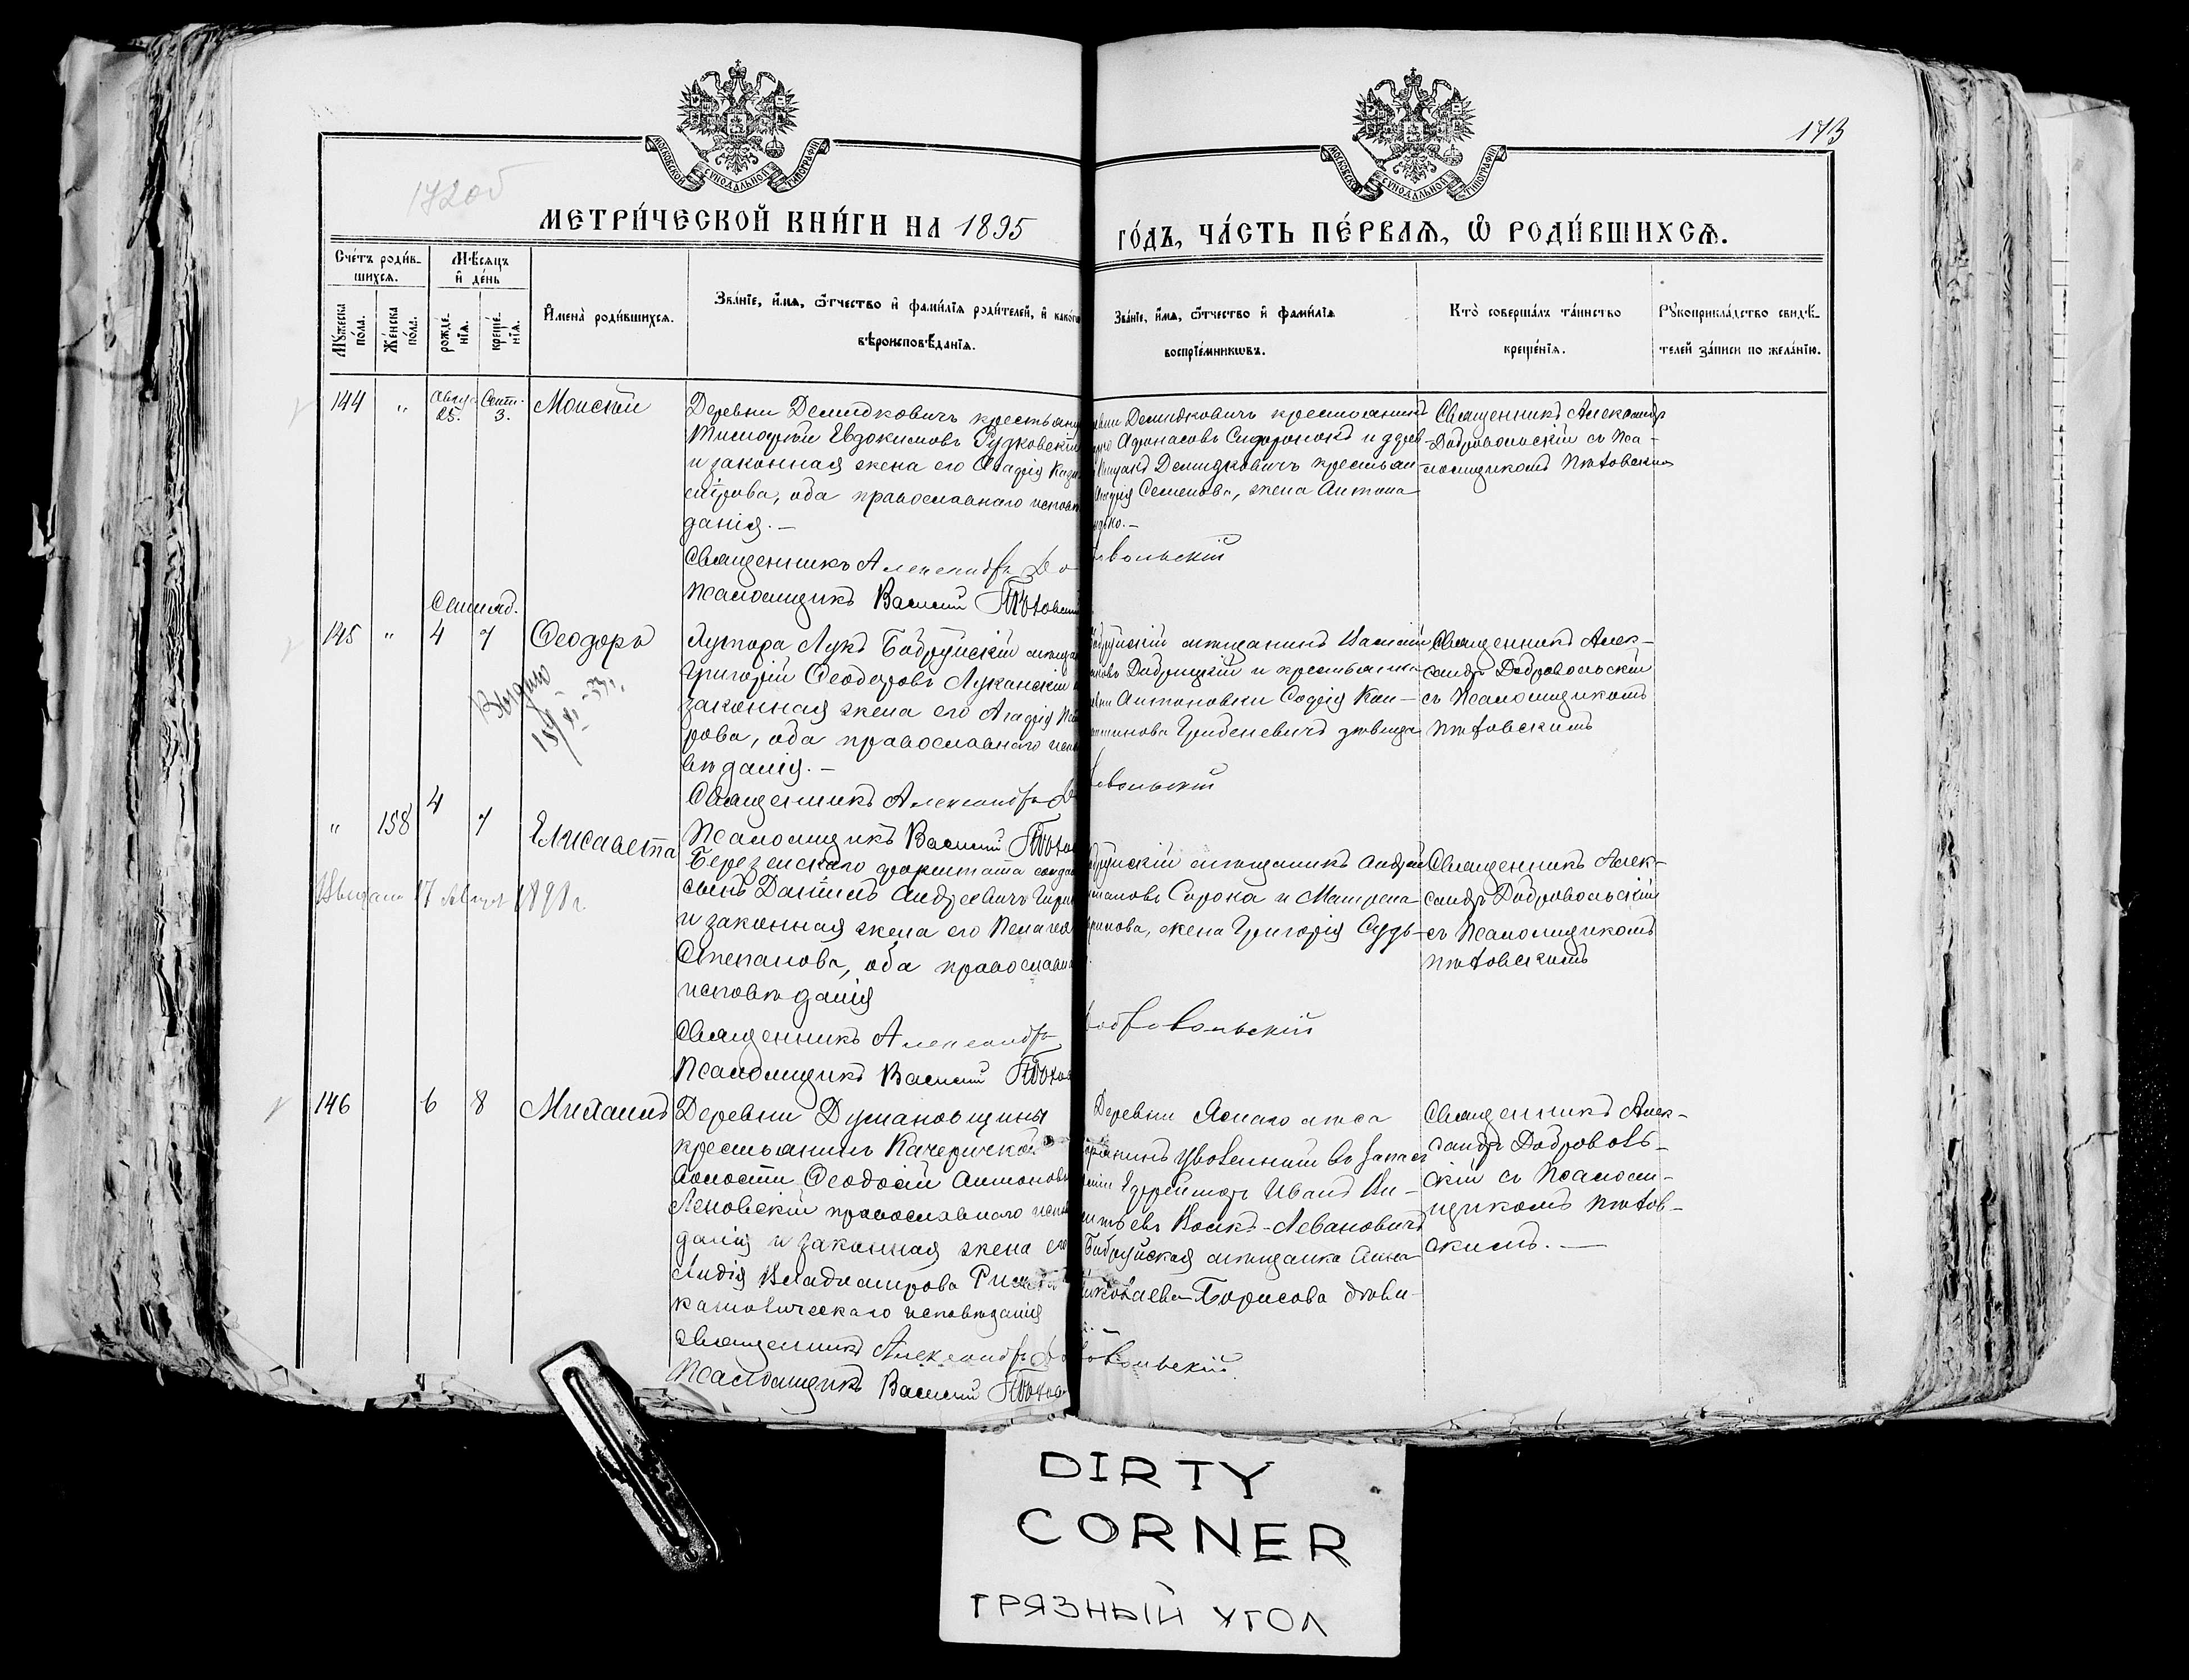 172об
173
МОСКОВСКОЙ СѴНОДАЛЬНОЙ ТИПОГРАФІИ
МОСКОВСКОЙ СѴНОДАЛЬНОЙ ТИПОГРАФІИ
МЕТРИ́ЧЕСКОЙ КНИ́ГИ НА 1895
ГО́ДЪ, ЧА́СТЬ ПЕ́РВАѦ, Ѡ҆ РОДИ́ВШИХСѦ.
Сче́тъ роди́в-
шихсѧ.
Мꙋ́жеска по́ла.
Же́нска по́ла.
Мѣ́сѧцъ
и҆ де́нь
рожде́-нїѧ.
креще́-нїѧ.
И҆мена̀ роди́вшихсѧ.
Зва́нїе, и҆́мѧ, ѻ҆́тчество и҆ фами́лїѧ роди́телей, и҆ како́гѡ
вѣроисповѣ́данїѧ.
Зва́нїе, и҆́мѧ, ѻ҆́тчество и҆ фами́лїѧ
воспрїе́мникѡвъ.
Кто̀ соверша́лъ та́инство
креще́нїѧ.
Рꙋкоприкла́дство свидѣ́-
телей за́писи по жела́нїю.
144 „ Авгус 25. Сент. 3. Моисей
Деревни Демидковичъ крестьани
Тимофей Евдокимовъ Рудковскій
и законная жена его Агафія Кази
мірова, оба православнаго испов
данія. —
Священникъ Александръ До
Псаломщикъ Василій Пѣтовскій
Демидковичъ крестьанинъ
Афанасовъ Сидоронокъ и дерев
Демидковичъ крестьан
Семенова, жена Антона
Священникъ Александръ
Добровольскій съ Пса-
ломщикомъ Пѣтовскимъ
Сентяб.
145 „ 4 7 Ѳеодоръ
Выдано
Хутора Лукъ Бобруйскій мѣщан
Григорій Ѳеодоровъ Луканскій и
законная жена его Агафія
рова, оба православнаго испо
вѣданія. —
Священникъ Александръ
Псаломщикъ Василій
мѣщанинъ Василій
Добрицкій и крестьанка
Антоновки Софія Кон-
Гриденевичъ дѣвица
Священникъ Алек-
сандръ Добровольскій
съ Псаломщикомъ
Пѣтовскимъ
„ 158 4 7 Елисавета
Выдано 17 Август 1898 г.
Березинскаго форштата солдат
сынъ Даніилъ Андреевичъ
и законная жена его Пелагея
Степанова, оба православн
исповѣданія
Священникъ Александръ
Псаломщикъ Василій
мѣщанинъ Андрей
Сорока и Матрена
жена Григорія Судь-
Добровольскій
Священникъ Алек-
сандръ Добровольскій
съ Псаломщикомъ
Пѣтовскимъ
146 6 8 Михаилъ
Деревни Думановщины
крестьанинъ Качеричской
волости Ѳеодосій Антоновъ
Леновскій православнаго испов
данія и законная жена его
Лидія Владимирова Римско
католическаго исповѣданія
Священникъ Александръ До
Псаломщикъ Василій
Деревни
уволенный въ запасъ
Ефрейторъ Иванъ Ви-
Волкъ-Левановичъ
Бобруйская мѣщанка Анна
Николаева Борисова дѣви-
Священникъ Алек-
сандръ Доброволь-
скій съ Псалом-
щикомъ Пѣтов-
скимъ. —
DIRTY
CORNER
ГРЯЗНЫЙ УГОЛ